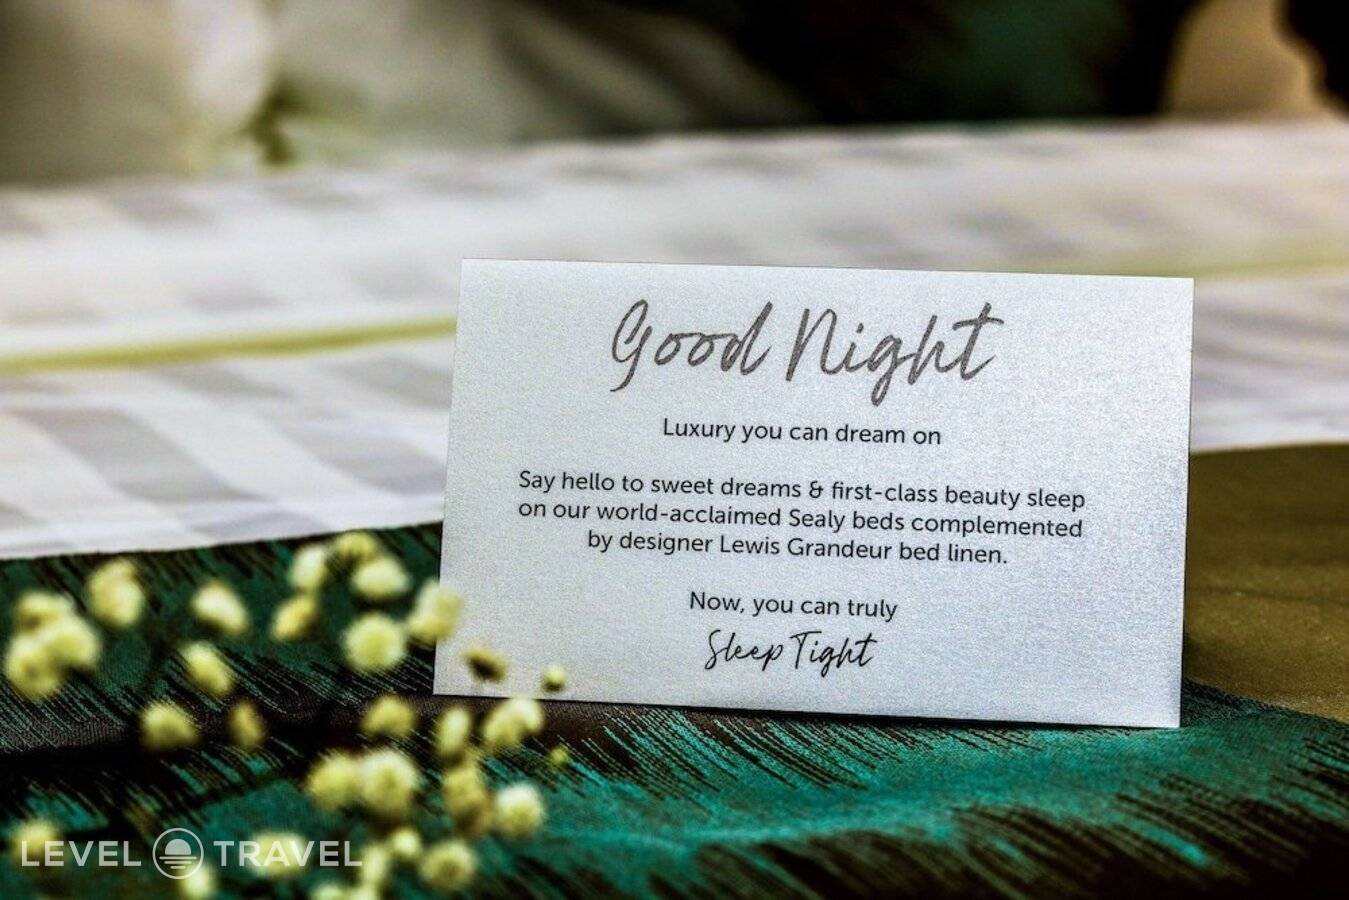 Good Night
Luxury you can dream on
Say hello to sweet dreams & first-class beauty sleep
on our world-acclaimed Sealy beds complemented
by designer Lewis Grandeur bed linen.
Now, you can truly
Sleep Tight
LEVEL TRAVEL